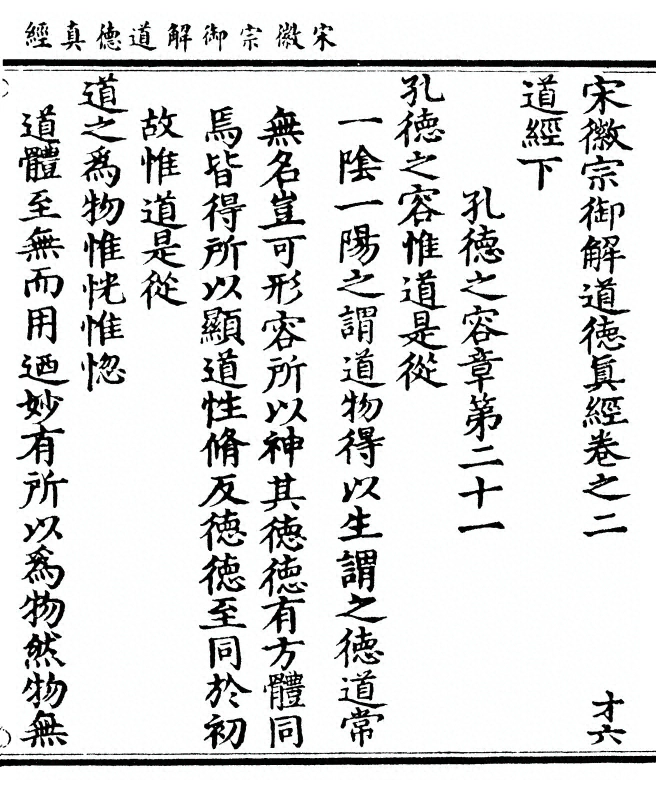 宋徽宗御解道德真經
宋徽宗御解道徳眞經卷之二
才六
道經下
孔徳之容章第二十一
孔徳之容惟道是從
一陰一陽之謂道物得以生謂之徳道常
無名豈可形容所以神其徳徳有方體同
焉皆得所以顯道性脩反徳徳至同於初
故惟道是從
道之爲物惟恍惟惚
道體至無而用迺妙有所以爲物然物無